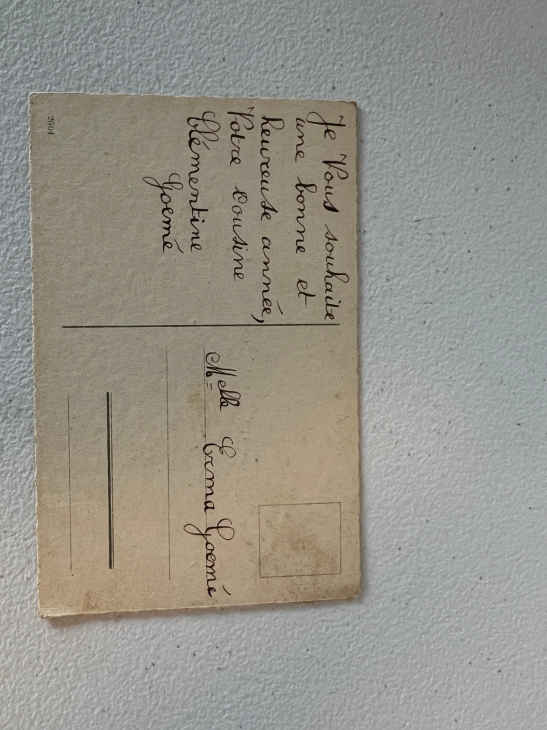 Je Vous souhaite
une bonne et
heureuse année,
Votre cousine
Clémentine
Goemé
Melle Erma Goemé
2504